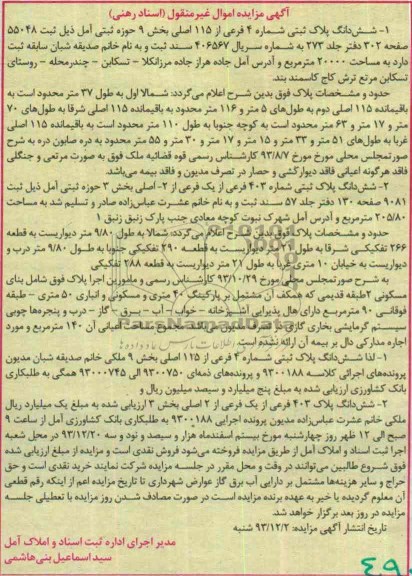 آگهی مزایده اموال غیرمنقول (اسناد رهنی)
۱- شش‌دانگ پلاک ثبتی شماره ۴ فرعی از ۱۱۵ اصلی بخش ۹ حوزه ثبتی آمل ذیل ثبت ۵۵۰۴۸
صفحه ۳۰۲ دفتر جلد ۲۷۳ به شماره سریال ۴۰۶۵۶۷ سند ثبت و به نام خانم صدیقه شبان سابقه ثبت
دارد به مساحت ۲۰۰۰۰ مترمربع و آدرس آمل جاده هراز جاده مرزانکلا - تسکابن - چندرمحله - روستای
تسکابن مرتع ترش کاج کاسمند بند.
حدود و مشخصات پلاک فوق بدین شرح اعلام می‌گردد: شمالا اول به طول ۳۷ متر محدود است به
باقیمانده ۱۱۵ اصلی دوم به طول‌های ۵ متر و ۱۱۶ متر محدود به باقیمانده ۱۱۵ اصلی شرقا به طول‌های ۷۰
متر و ۱۷ متر و ۶۳ متر محدود است به کوچه جنوبا به طول ۱۱۰ متر محدود است به باقیمانده ۱۱۵ اصلی
غربا به طول‌های ۵۱ متر و ۳۳ متر و ۱۵ متر و ۱۷ متر و ۳۰ متر و ۵۵ متر محدود به دره صابون دره به شرح
صورتمجلس محلی مورخ مورخ ۹۳/۸/۷ کارشناس رسمی قوه قضائیه ملک فوق به صورت مرتعی و جنگلی
فاقد هرگونه اعیانی فاقد دیوارکشی و حصار در تصرف مدیون و فاقد بیمه می‌باشد.
۲- شش‌دانگ پلاک ثبتی شماره ۴۰۳ فرعی از یک فرعی از ۲- اصلی بخش ۳ حوزه ثبتی آمل ذیل ثبت
۹۰۸۱ صفحه ۱۳۰ دفتر جلد ۵۷ سند ثبت و به نام خانم عشرت عباس‌زاده صادر و تسلیم شد به مساحت
۲۰۵/۸۰ مترمربع و آدرس آمل شهرک نبوت کوچه معادی جنب پارک زنبق زنبق ۱
حدود و مشخصات پلاک فوق بدین شرح اعلام می‌گردد: شمالا به طول ۹/۸۰ متر دیواریست به قطعه
۲۶۶ تفکیکی شرقا به طول ۲۱ متر دیواریست به قطعه ۲۹۰ تفکیکی جنوبا به طول ۹/۸۰ متر درب و
دیواریست به خیابان ۱۰ متری غربا به طول ۲۱ متر دیواریست به قطعه ۲۸۸ تفکیکی
به شرح صورتمجلس محلی مورخ ۹۳/۱۰/۲۹ کارشناس رسمی و مامورین اجرا پلاک فوق شامل بنای
مسکونی ۲طبقه قدیمی که همکف آن مشتمل بر پارکینگ ۴۰ متری و مسکونی و انباری ۵۰ متری - طبقه
فوقانی ۹۰ مترمربع دارای هال پذیرایی آشپزخانه - خواب - آب - برق - گاز - درب و پنجره‌ها چوبی
سیستم گرمایشی بخاری گازی در تصرف اعیانی آن ۱۴۰ مترمربع و مورد
اجاره مدارکی دال بر بیمه آن ارائه نشده است.
۱- لذا شش‌دانگ پلاک ثبتی شماره ۴ فرعی از ۱۱۵ اصلی بخش ۹ ملکی خانم صدیقه شبان مدیون
پرونده‌های اجرائی کلاسه ۹۳۰۰۱۸۸ و پرونده‌های ذمه‌ای ۹۳۰۰۷۵۰ الی ۹۳۰۰۰۷۴۵ همگی به طلبکاری
بانک کشاورزی ارزیابی شده به مبلغ پنج میلیارد و سیصد میلیون ریال و
۲- شش‌دانگ پلاک ۴۰۳ فرعی از یک فرعی از ۲ اصلی بخش ۳ ارزیابی شده به مبلغ یک میلیارد ریال
ملکی خانم عشرت عباس‌زاده مدیون پرونده اجرایی ۹۳۰۰۱۸۸ به طلبکاری بانک کشاورزی آمل از ساعت ۹
صبح الی ۱۲ ظهر روز چهارشنبه مورخ بیستم اسفندماه هزار و سیصد و نود و سه ۹۳/۱۲/۲۰ در محل شعبه
اجرا ثبت اسناد و املاک آمل از طریق مزایده فروخته می‌شود فروش نقدی است و مزایده از مبلغ ارزیابی شده
فوق شروع طالبین می‌توانند در وقت و محل مقرر در جلسه مزایده شرکت نمایند خرید نقدی است و حق
حراج و سایر هزینه‌ها مشتمل بر دارایی آب برق گاز عوارض شهرداری تا تاریخ مزایده اعم از اینکه رقم قطعی
آن معلوم گردیده یا خیر به عهده برنده مزایده است در صورت مصادف شدن روز مزایده با تعطیلی جلسه
مزایده در روز بعد برگزار خواهد شد.
تاریخ انتشار آگهی مزایده: ۹۳/۱۲/۲ شنبه
مدیر اجرای اداره ثبت اسناد و املاک آمل
سید اسماعیل بنی‌هاشمی